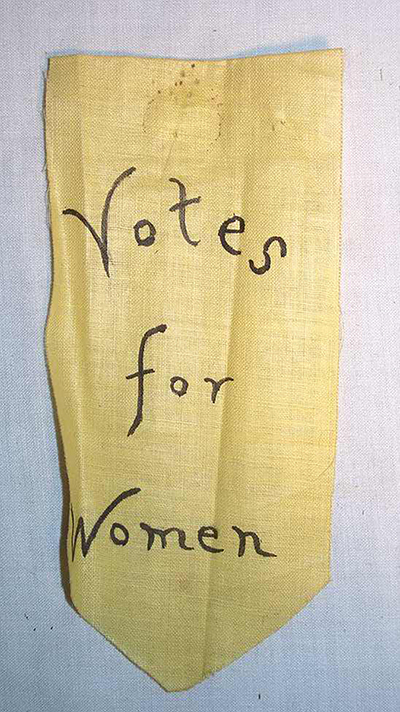 Votes
for
Women